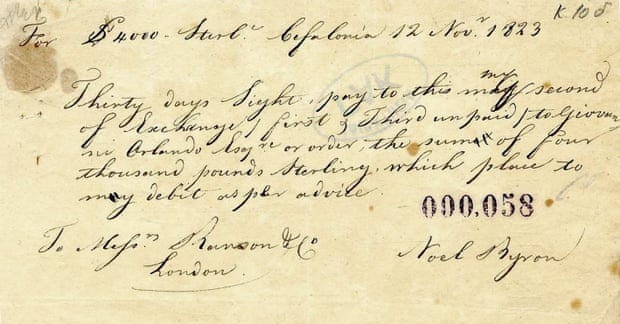 K 10 δ.
For £ 4000 - Sterl.c Cefalonia 12 Nov.r 1823
Thirty days Sight, pay to this my second
of Exchange, / first & Third unpaid / to Giovan
ni Orlando Esq.re or order, the sum of four
thousand pounds Sterling, which place to
my debit as per advice.
000,058
To Mess.rs Ranson & Co Noel Byron
London.